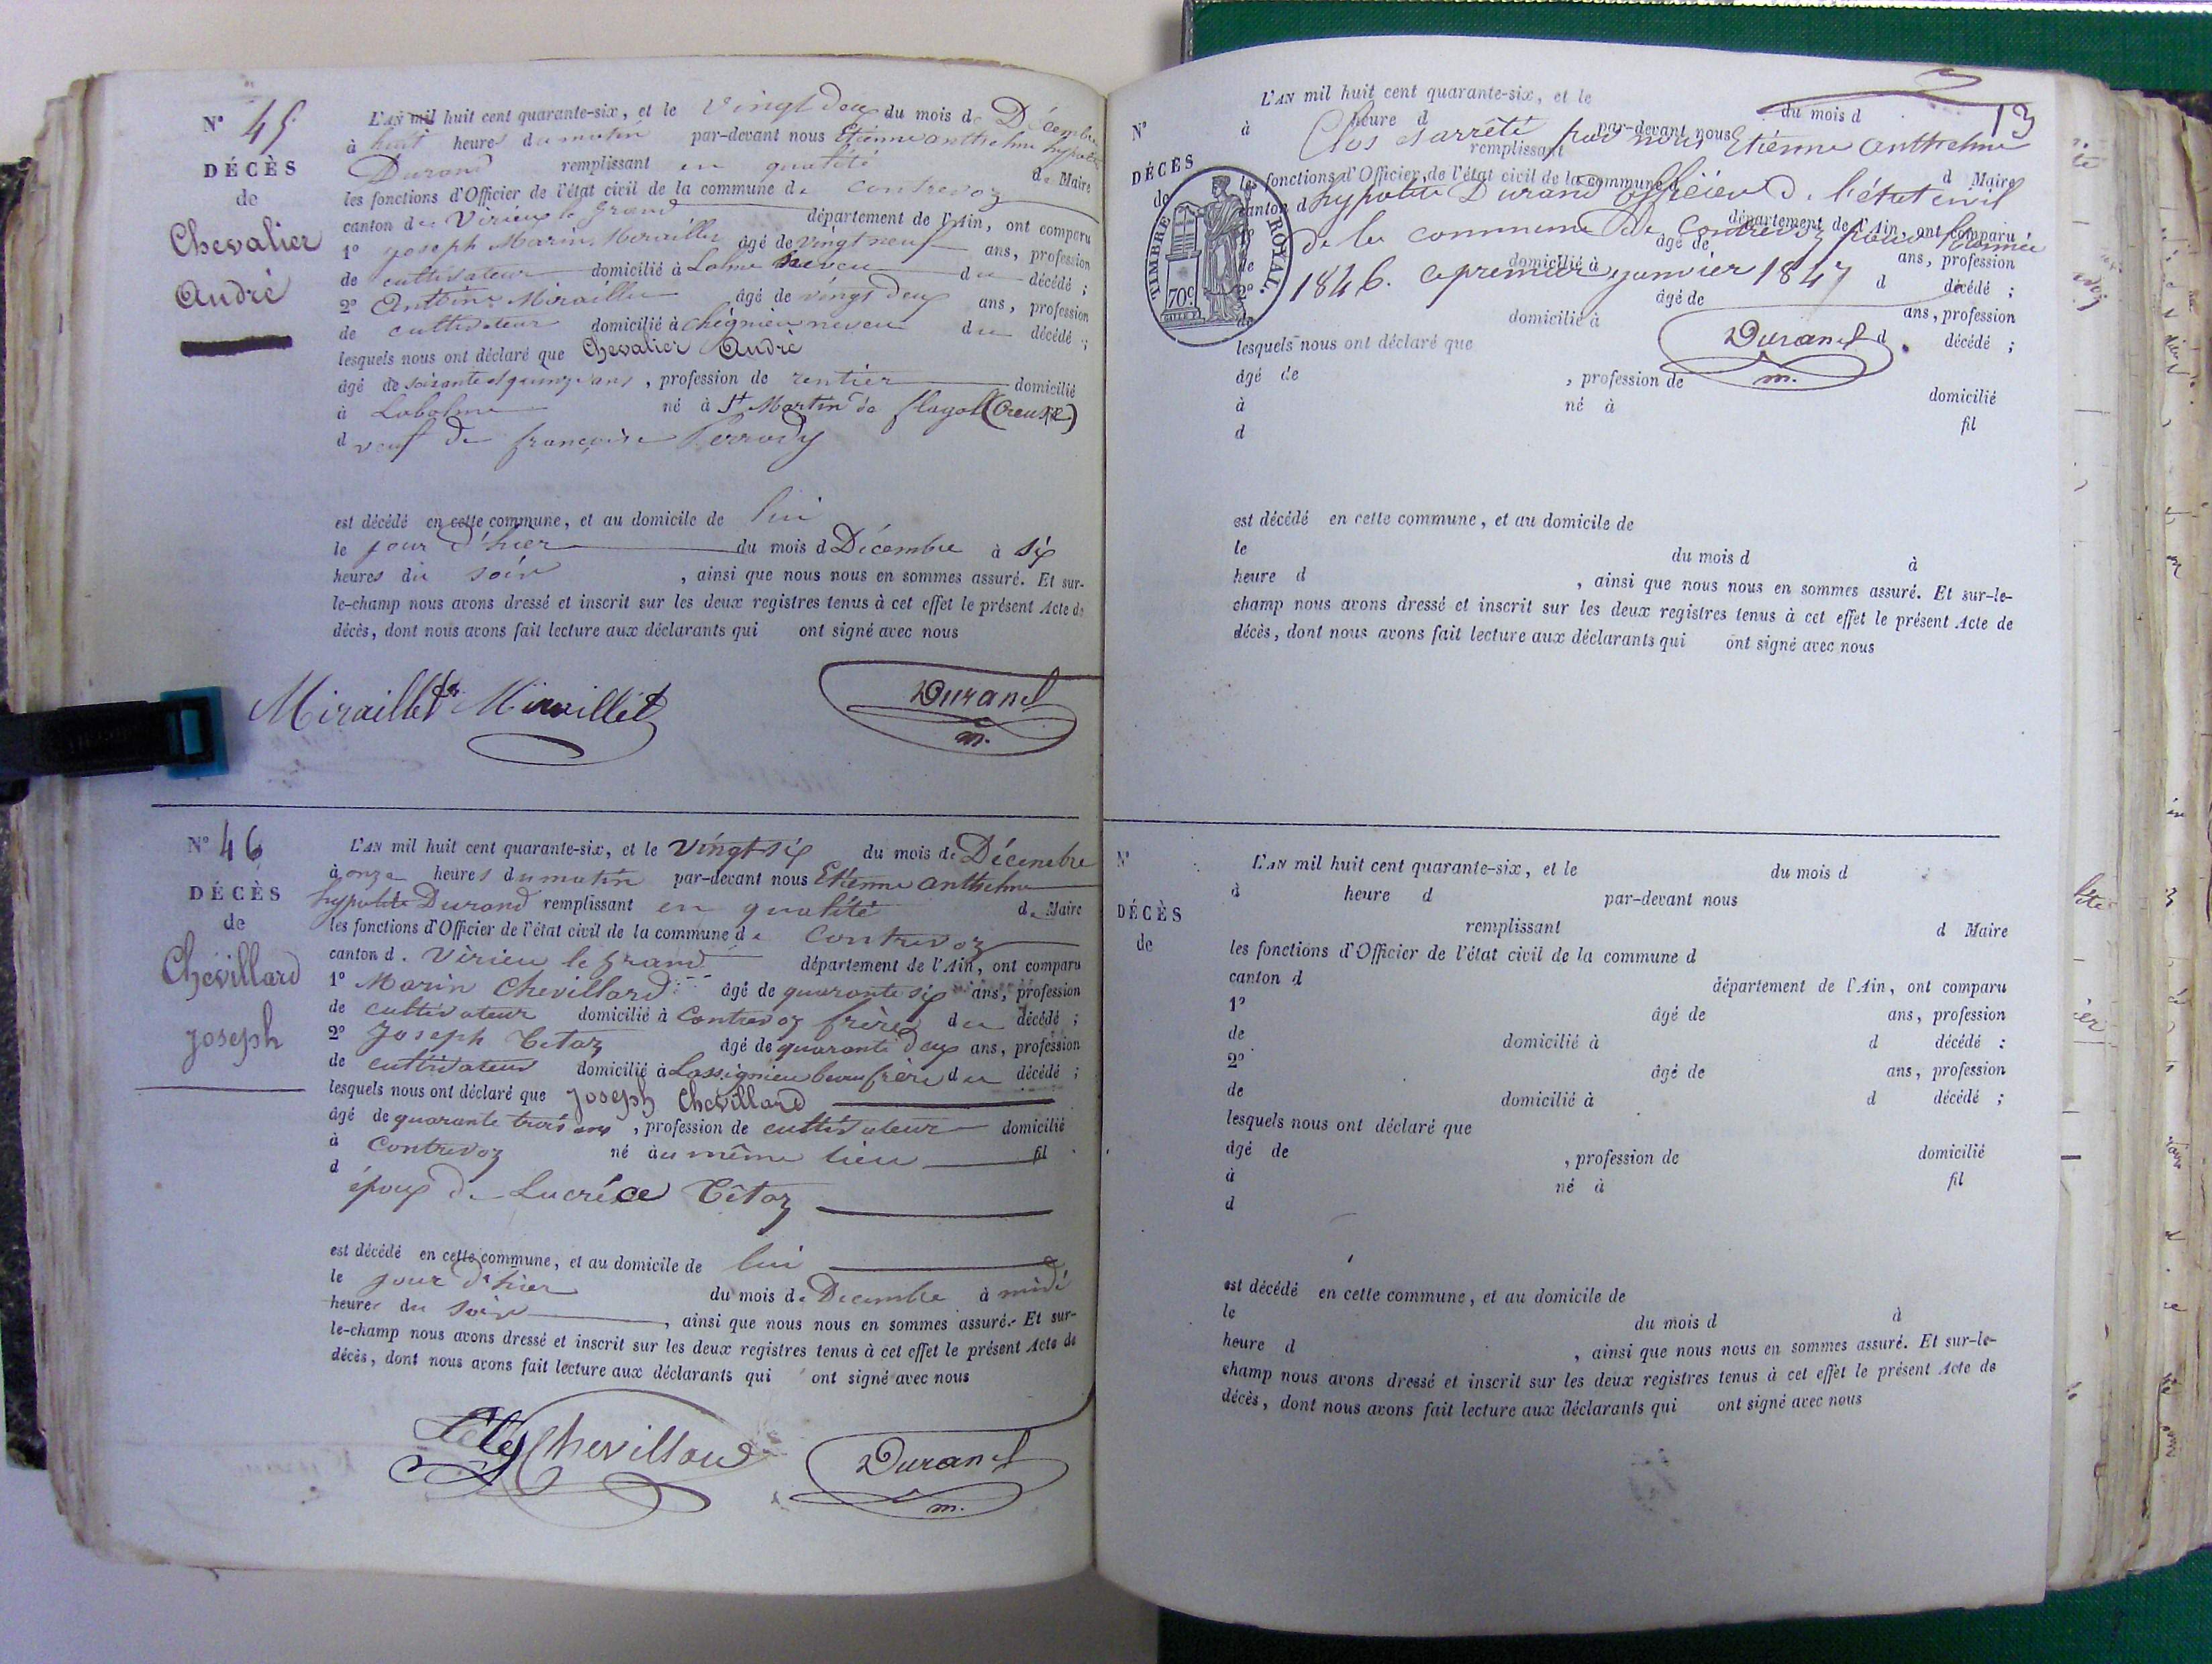 N° 45
DÉCÈS
de
Chevalier
André
L'AN mil huit cent quarante-six, et le vingt deux du mois de Décembre
à huit heures du matin par-devant nous Etienne anthelme hypolite
Durand remplissant en qualité de Maire
les fonctions d'Officier de l'état civil de la commune de contrevoz
canton de Virieu le grand département de l'Ain, ont comparu
1° joseph Marin Miraillet âgé de vingt neuf ans, profession
de cultivateur domicilié à neveu du décédé ;
2° Antoine Miraillet âgé de vingt deux ans, profession
de cultivateur domicilié à chégnieu neveu du décédé ;
lesquels nous ont déclaré que Chevalier André
âgé de soixante et quinze ans, profession de rentier domicilié
à Labalme né à St Martin de (Creuse)
d veuf de françoise
est décédé en cette commune, et au domicile de lui
le jour d'hier du mois d Décembre à six
heures du soir, ainsi que nous nous en sommes assuré. Et sur-
le-champ nous avons dressé et inscrit sur les deux registres tenus à cet effet le présent Acte de
décès, dont nous avons fait lecture aux déclarants qui ont signé avec nous
Miraillet Miraillet Durand
m.
N° 46
DÉCÈS
de
Chevillard
joseph
L'AN mil huit cent quarante-six, et le vingt-six du mois de Décembre
à onze heures du matin par-devant nous Etienne anthelme
hypolite Durand remplissant en qualité de Maire
les fonctions d'Officier de l'état civil de la commune de contrevoz
canton d. Virieu le grand département de l'Ain, ont comparu
1° Marin Chevillard âgé de quarante six ans, profession
de cultivateur domicilié à Contrevoz frère du décédé ;
2° joseph Tetaz âgé de quarante deux ans, profession
de cultivateur domicilié à Lassignieu beau frère du décédé ;
lesquels nous ont déclaré que joseph Chevillard
âgé de quarante trois ans, profession de cultivateur domicilié
à Contrevoz né àu même lieu fil
d époux de Lucréce Têtaz
est décédé en cette commune, et au domicile de lui
le jour d'hier du mois de Decembre à midi
heures du soir, ainsi que nous nous en sommes assuré. Et sur-
le-champ nous avons dressé et inscrit sur les deux registres tenus à cet effet le présent Acte de
décès, dont nous avons fait lecture aux déclarants qui ont signé avec nous
Chevillard Durand
m.
13
N°
DÉCÈS
de
TIMBRE ROYAL.
70c
L'AN mil huit cent quarante-six, et le du mois d
à heure d par-devant nous
Clos et arrêté par nous Etienne anthelme
remplissant d Maire
les fonctions d'Officier de l'état civil de la commune d
hypolite Durand officier de l'état civil
canton d département de l'Ain, ont comparu
de la commune de Contrevoz pour l'année
1° âgé de ans, profession
de domicilié à d décédé ;
1846. ce premier janvier 1847
2° âgé de ans, profession
de domicilié à d décédé ;
Durand
m.
lesquels nous ont déclaré que
âgé de , profession de domicilié
à né à fil
d
est décédé en cette commune, et au domicile de
le du mois d à
heure d , ainsi que nous nous en sommes assuré. Et sur-le-
champ nous avons dressé et inscrit sur les deux registres tenus à cet effet le présent Acte de
décès, dont nous avons fait lecture aux déclarants qui ont signé avec nous
N°
DÉCÈS
de
L'AN mil huit cent quarante-six, et le du mois d
à heure d par-devant nous
remplissant d Maire
les fonctions d'Officier de l'état civil de la commune d
canton d département de l'Ain, ont comparu
1° âgé de ans, profession
de domicilié à d décédé ;
2° âgé de ans, profession
de domicilié à d décédé ;
lesquels nous ont déclaré que
âgé de , profession de domicilié
à né à fil
d
est décédé en cette commune, et au domicile de
le du mois d à
heure d , ainsi que nous nous en sommes assuré. Et sur-le-
champ nous avons dressé et inscrit sur les deux registres tenus à cet effet le présent Acte de
décès, dont nous avons fait lecture aux déclarants qui ont signé avec nous